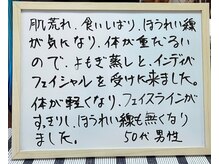 肌荒れ、食いしばり、ほうれい線
が気になり、体が重だるい
ので、よもぎ蒸しと、インディバ
フェイシャルを受けに来ました。
体が軽くなり、フェイスラインが
すっきりし、ほうれい線も無くなり
ました。 50代 男性